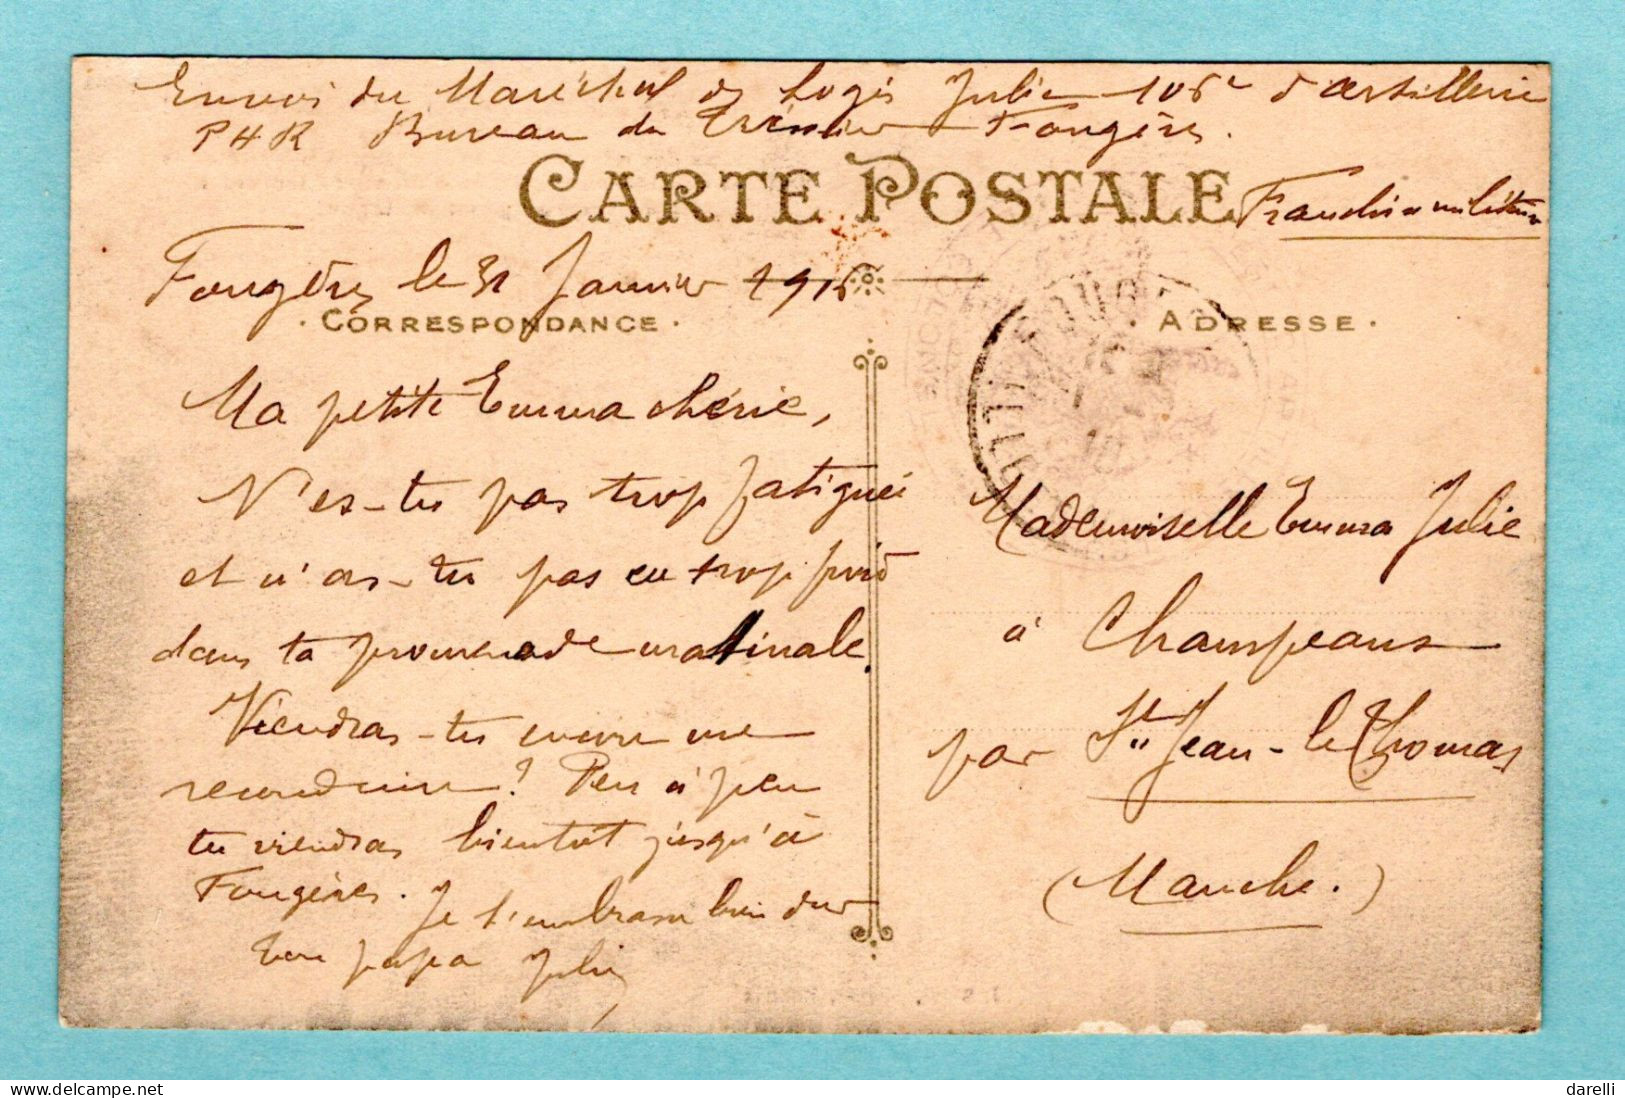 Envoi du Maréchal des Logis Julie 10e d'artillerie
PHR Bureau du Trésorier Fougères.
CARTE POSTALE
Franchise militaire
Fougères le 31 Janvier 1916
CORRESPONDANCE
ADRESSE
Ma petite Emma chérie,
N'es-tu pas trop fatiguée
et n'as-tu pas eu trop froid
dans ta promenade matinale.
Viendras-tu encore me
reconduire? Peu à peu
tu viendras bientôt jusqu'à
Fougères. Je t'embrasse bien dur
Ton papa Julie
Mademoiselle Emma Julie
à Champeaux
par St Jean-le Thomas
(Manche.)
delcampe.net
darelli